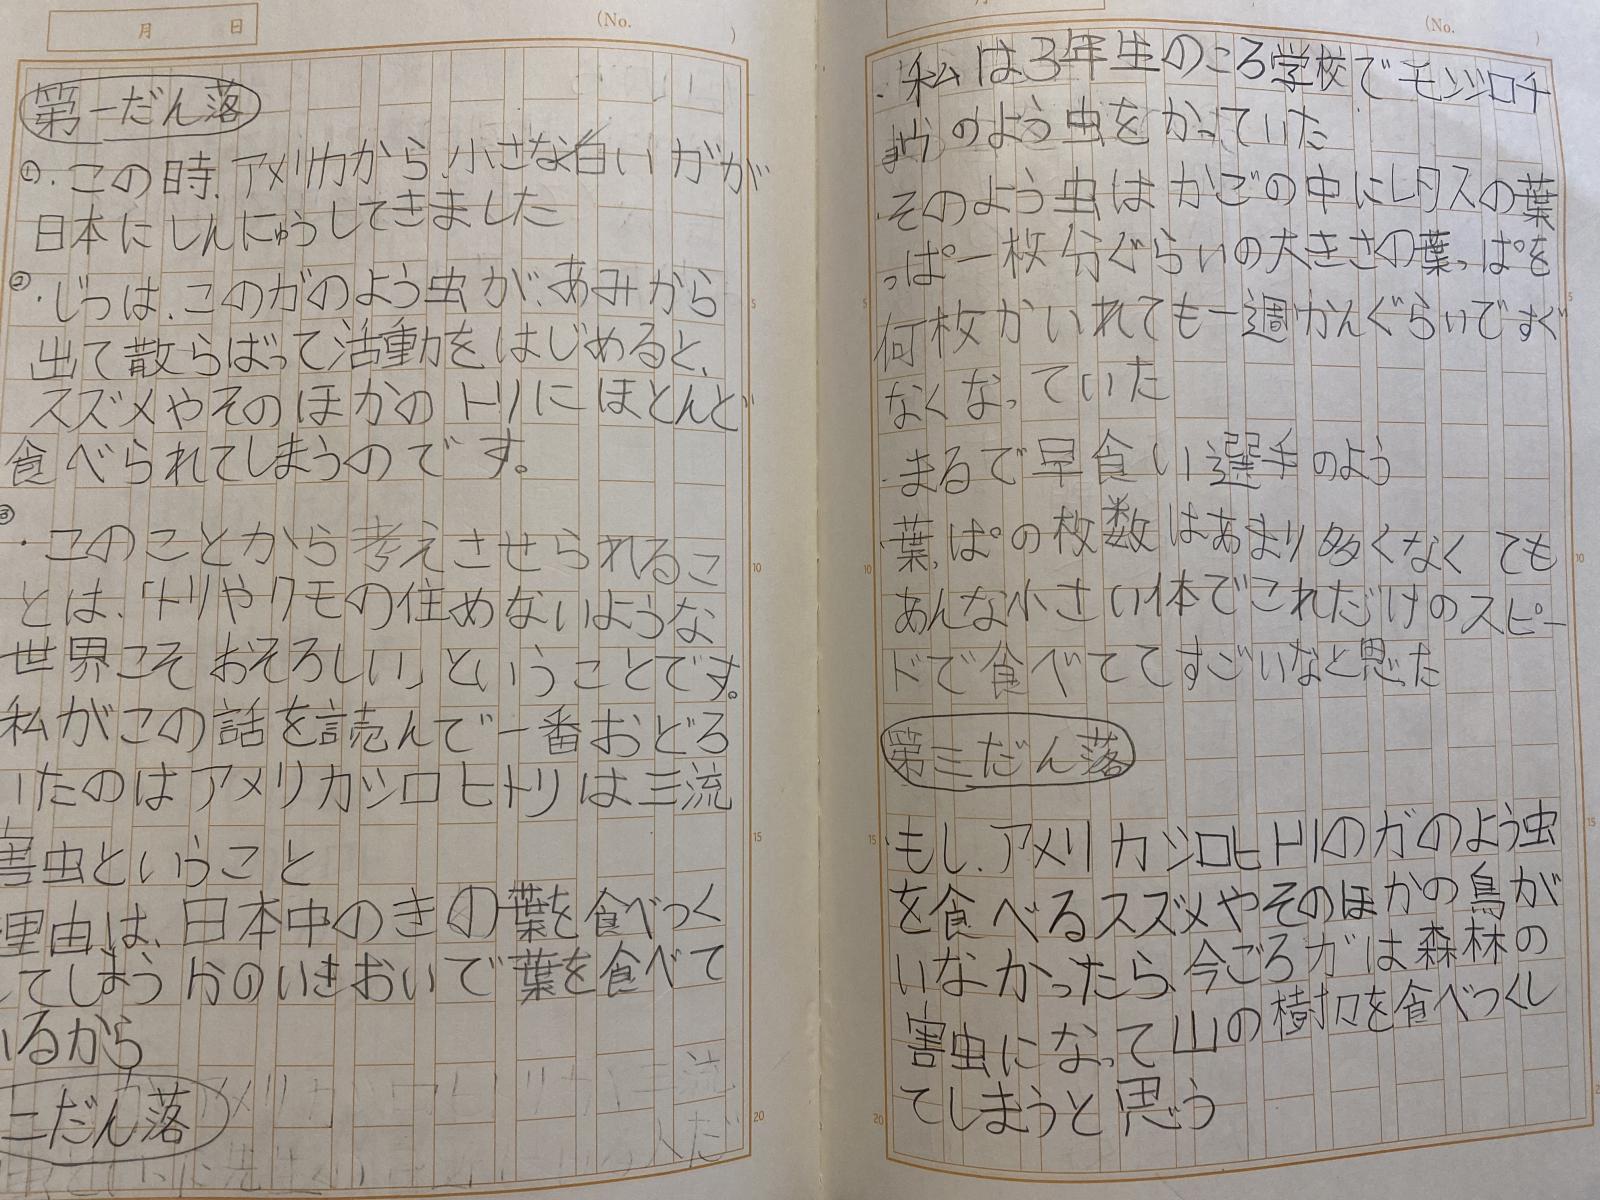 月 日 (No. )
第一だん落
①・この時、アメリカから、小さな白い ガが
日本にしんにゅうしてきました
②・じつは、このガのよう虫が、あみから
出て散らばって活動をはじめると、
スズメやそのほかのトリにほとんど
食べられてしまうのです。
③
・このことから考えさせられるこ
とは、「トリやクモの住めないような
世界こそおそろしい」ということです。
私がこの話を読んで一番おどろ
いたのはアメリカシロヒトリは三流
害虫ということ
理由は、日本中のきの葉を食べつく
してしまうかのいきおいで葉を食べて
いるから
二だん落
月 (No. )
・私は3年生のころ学校でモンシロチ
のよう虫をかっていた
・そのよう虫はかごの中にレタスの葉
っぱ一枚分ぐらいの大きさの葉っぱを
何枚かいれても一週かんぐらいですぐ
なくなっていた
・まるで早食い選手のよう
・葉っぱの枚数はあまり多くなくても
あんな小さい体でこれだけのスピー
ドで食べててすごいなと思った
第三だん落
もし、アメリカシロヒトリのガのよう虫
を食べるスズメやそのほかの鳥が
いなかったら、今ごろガは森林の
害虫になって山の樹加を食べつくし
てしまうと思う
5
10
15
20
5
10
15
20